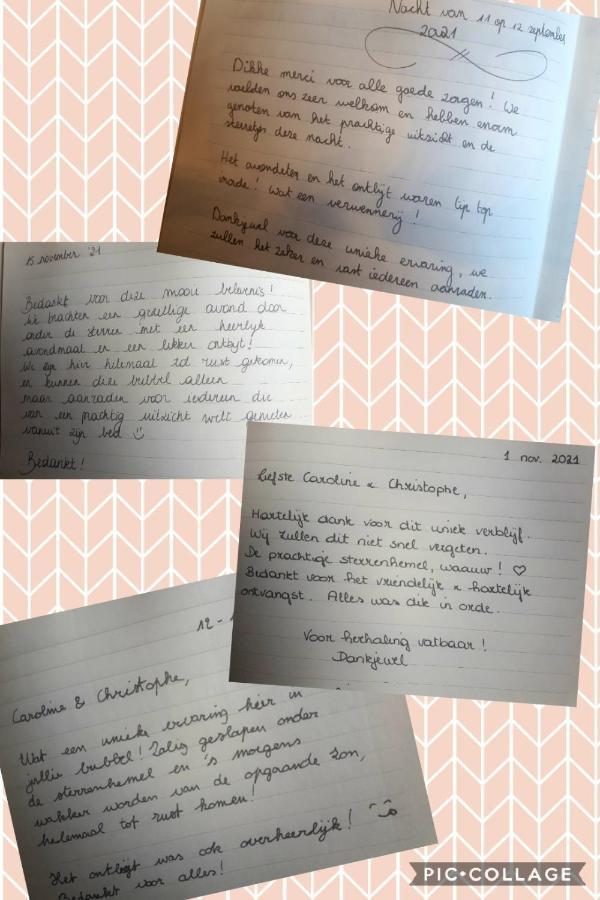 Nacht van 11 op 12 september
2021
Dikke merci voor alle goede zorgen! We
voelden ons zeer welkom en hebben enorm
genoten van het prachtige uitzicht en de
sterretjes deze nacht.
Het avondeten en het ontbijt waren tip top
in orde! Wat een verwennerij!
Dankjewel voor deze unieke ervaring, we
zullen het zeker en vast iedereen aanraden.
15 november '21
Bedankt voor deze mooie belevnis!
We brachten een gezellige avond door
onder de sterren met een heerlijk
avondmaal en een lekker ontbijt!
We zijn hier helemaal tot rust gekomen,
en kunnen deze bubbel alleen
maar aanraden voor iedereen die
van een prachtig uitzicht wilt genieten
vanuit zijn bed
Bedankt!
1 nov. 2021
Liefste Caroline & Christophe,
Hartelijk dank voor dit uniek verblijf.
Wij zullen dit niet snel vergeten.
De prachtige sterrenhemel, waauw! ♡
Bedankt voor het vriendelijk & hartelijk
ontvangst. Alles was dik in orde.
Voor herhaling vatbaar!
Dankjewel
12-
Caroline & Christophe,
Wat een unieke ervaring heir in
jullie bubbel! Zalig geslapen onder
de sterrenhemel en 's morgens
wakker worden van de opgaande zon,
helemaal tot rust komen!
Het ontbijt was ook overheerlijk!
Bedankt voor alles!
PIC•COLLAGE